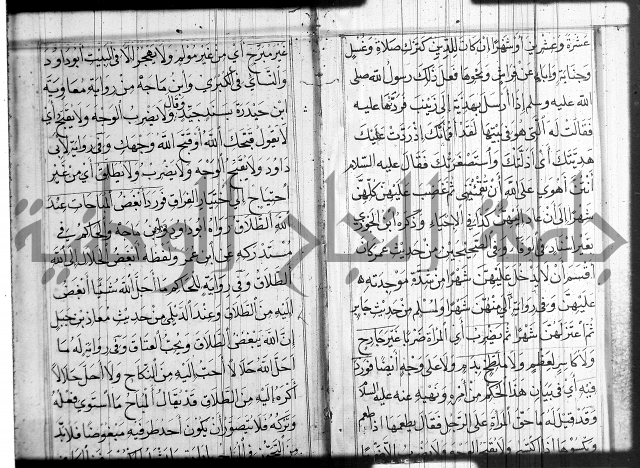 عشرة وعشرين او شهرا ان كان للدين كترك صلاة وغسل
وجنابة واباء عن فراش ونحوها فعل ذلك رسول الله صلى
الله عليه وسلم اذا ارسل بهدية الى زينب فردتها عليه
فقالت له التي هو في بيتها لقد اقمأتك اذ ردت عليك
هديتك اي اذلتك واستصغرتك فقال عليه السلام
انتن اهون على الله ان تقمئنني ثم غضب عليهن كلهن
شهرا الى ان عاد اليهن كذا في الاحياء وذكره ابن الجوزي
بغير اسناد في الوفا وفي الصحيحين من حديث عمر كان
اقسم ان لا يدخل عليهن شهرا من شدة موجدته
عليهن وفي رواية آلى منهن شهرا ولمسلم من حديث جابر
ثم اعتزلهن شهرا ثم يضرب اي المرأة ضربا غير جارح
ولا كاسر لعظم ولا ولا على وجه ايضا فورد
فيه اي في بيان هذا الحكم من امره ونهيه عنه عليه السلام
وقد قيل له ما حق المرأة على الرجل فقال يطعمها اذا طعم
ويكسوها اذا اكتسى ولا يقبح الوجه ولا يضرب الا ضربا
غير مبرح اي من غير مؤلم ولا يهجر الا في البيت ابو داود
والنسائي في الكبرى وابن ماجة من رواية معاوية
ابن حيدة بسند جيد وقال ولا يضرب الوجه ولا يقبح اي
لا يقول قبحك الله او قبح الله وجهك وفي رواية لابي
داود ولا تقبح الوجه ولا يضرب ولا يطلق اي من غير
احتياج الى اختيار الفراق فورد ابغض المباحات عند
الله الطلاق رواه ابو داود وابن ماجة والحاكم في
مستدركه عن ابن عمر ولفظه ابغض الحلال الى الله
الطلاق وفي رواية للحاكم ما احل الله شيئا ابغض
اليه من الطلاق وعند الديلمي من حديث معاذ بن جبل
ان الله يبغض الطلاق ويحب العتاق وفي رواية له ما
احل الله حلالا احب اليه من النكاح ولا احل حلالا
اكره اليه من الطلاق قد يقال المباح ما استوى فعله
وتركه فلا يتصور ان يكون احد طرفيه مبغوضا فلا بد
جامعة النجاح الوطنية